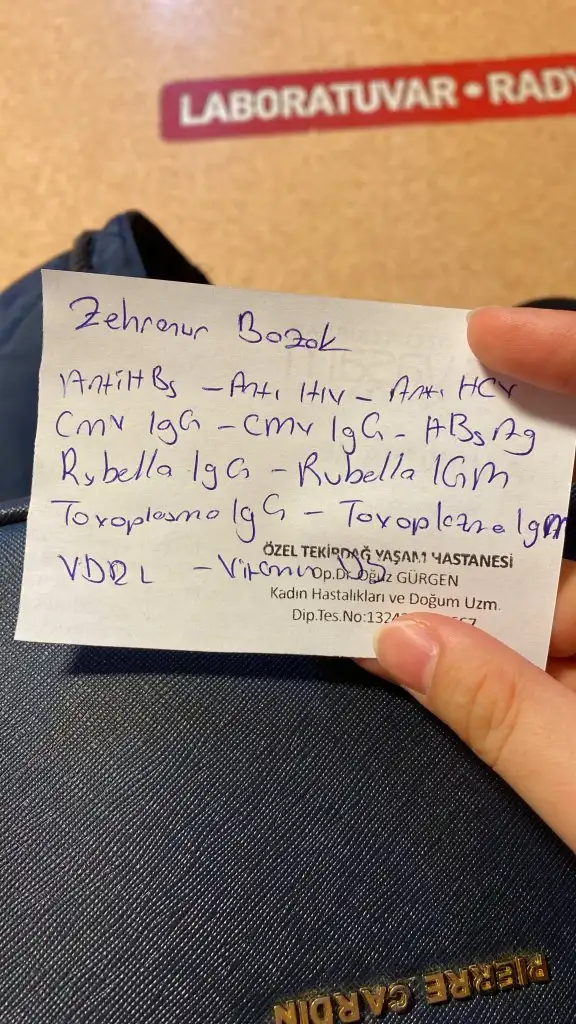 LABORATUVAR • RADY
Zehranur Bozok
AntiHBs - Anti HIV - Anti HCV
CMV IgG - CMV IgG - HBsAg
Rubella IgG - Rubella IGM
Toxoplasma IgG - Toxoplazma IgM
ÖZEL TEKİRDAĞ YAŞAM HASTANESİ
VDRL - Vitamin
Op.Dr.Oğuz GÜRGEN
Kadın Hastalıkları ve Doğum Uzm.
Dip.Tes.No:1324
PIERRE CARDIN